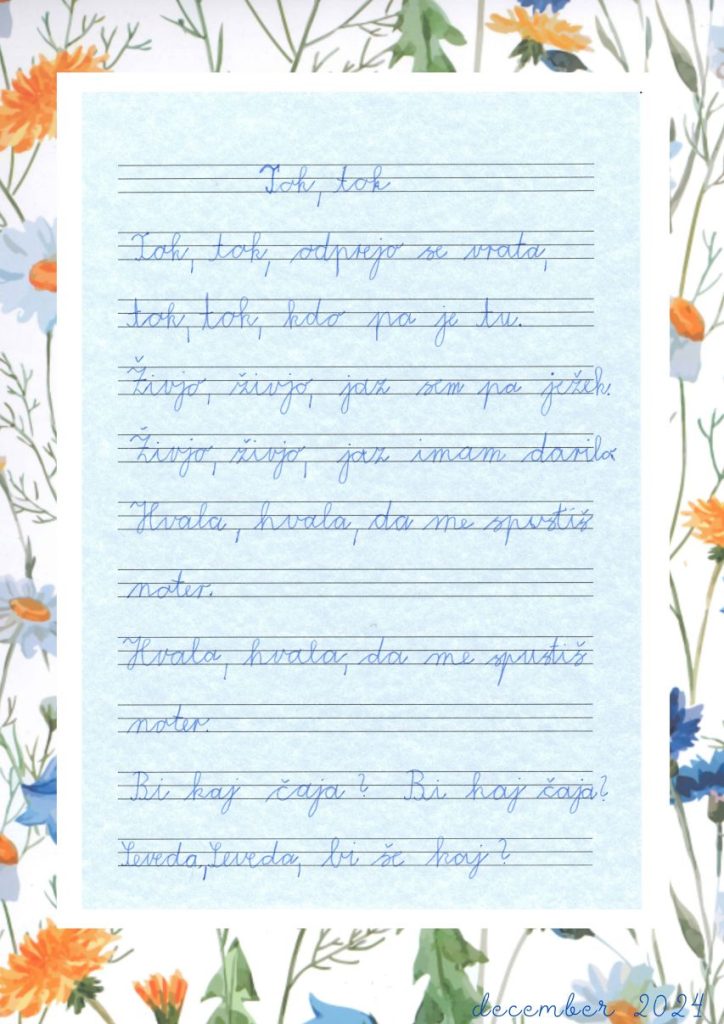 Tok, tok
Tok, tok, odprejo se vrata,
tok, tok, kdo pa je tu.
Živjo, živjo, jaz sem pa ježek.
Živjo, živjo, jaz imam darila
Hvala, hvala, da me spustiš
noter.
Hvala, hvala, da me spustiš
noter.
Bi kaj čaja? Bi kaj čaja?
Seveda, Seveda, bi še kaj?
december 2024